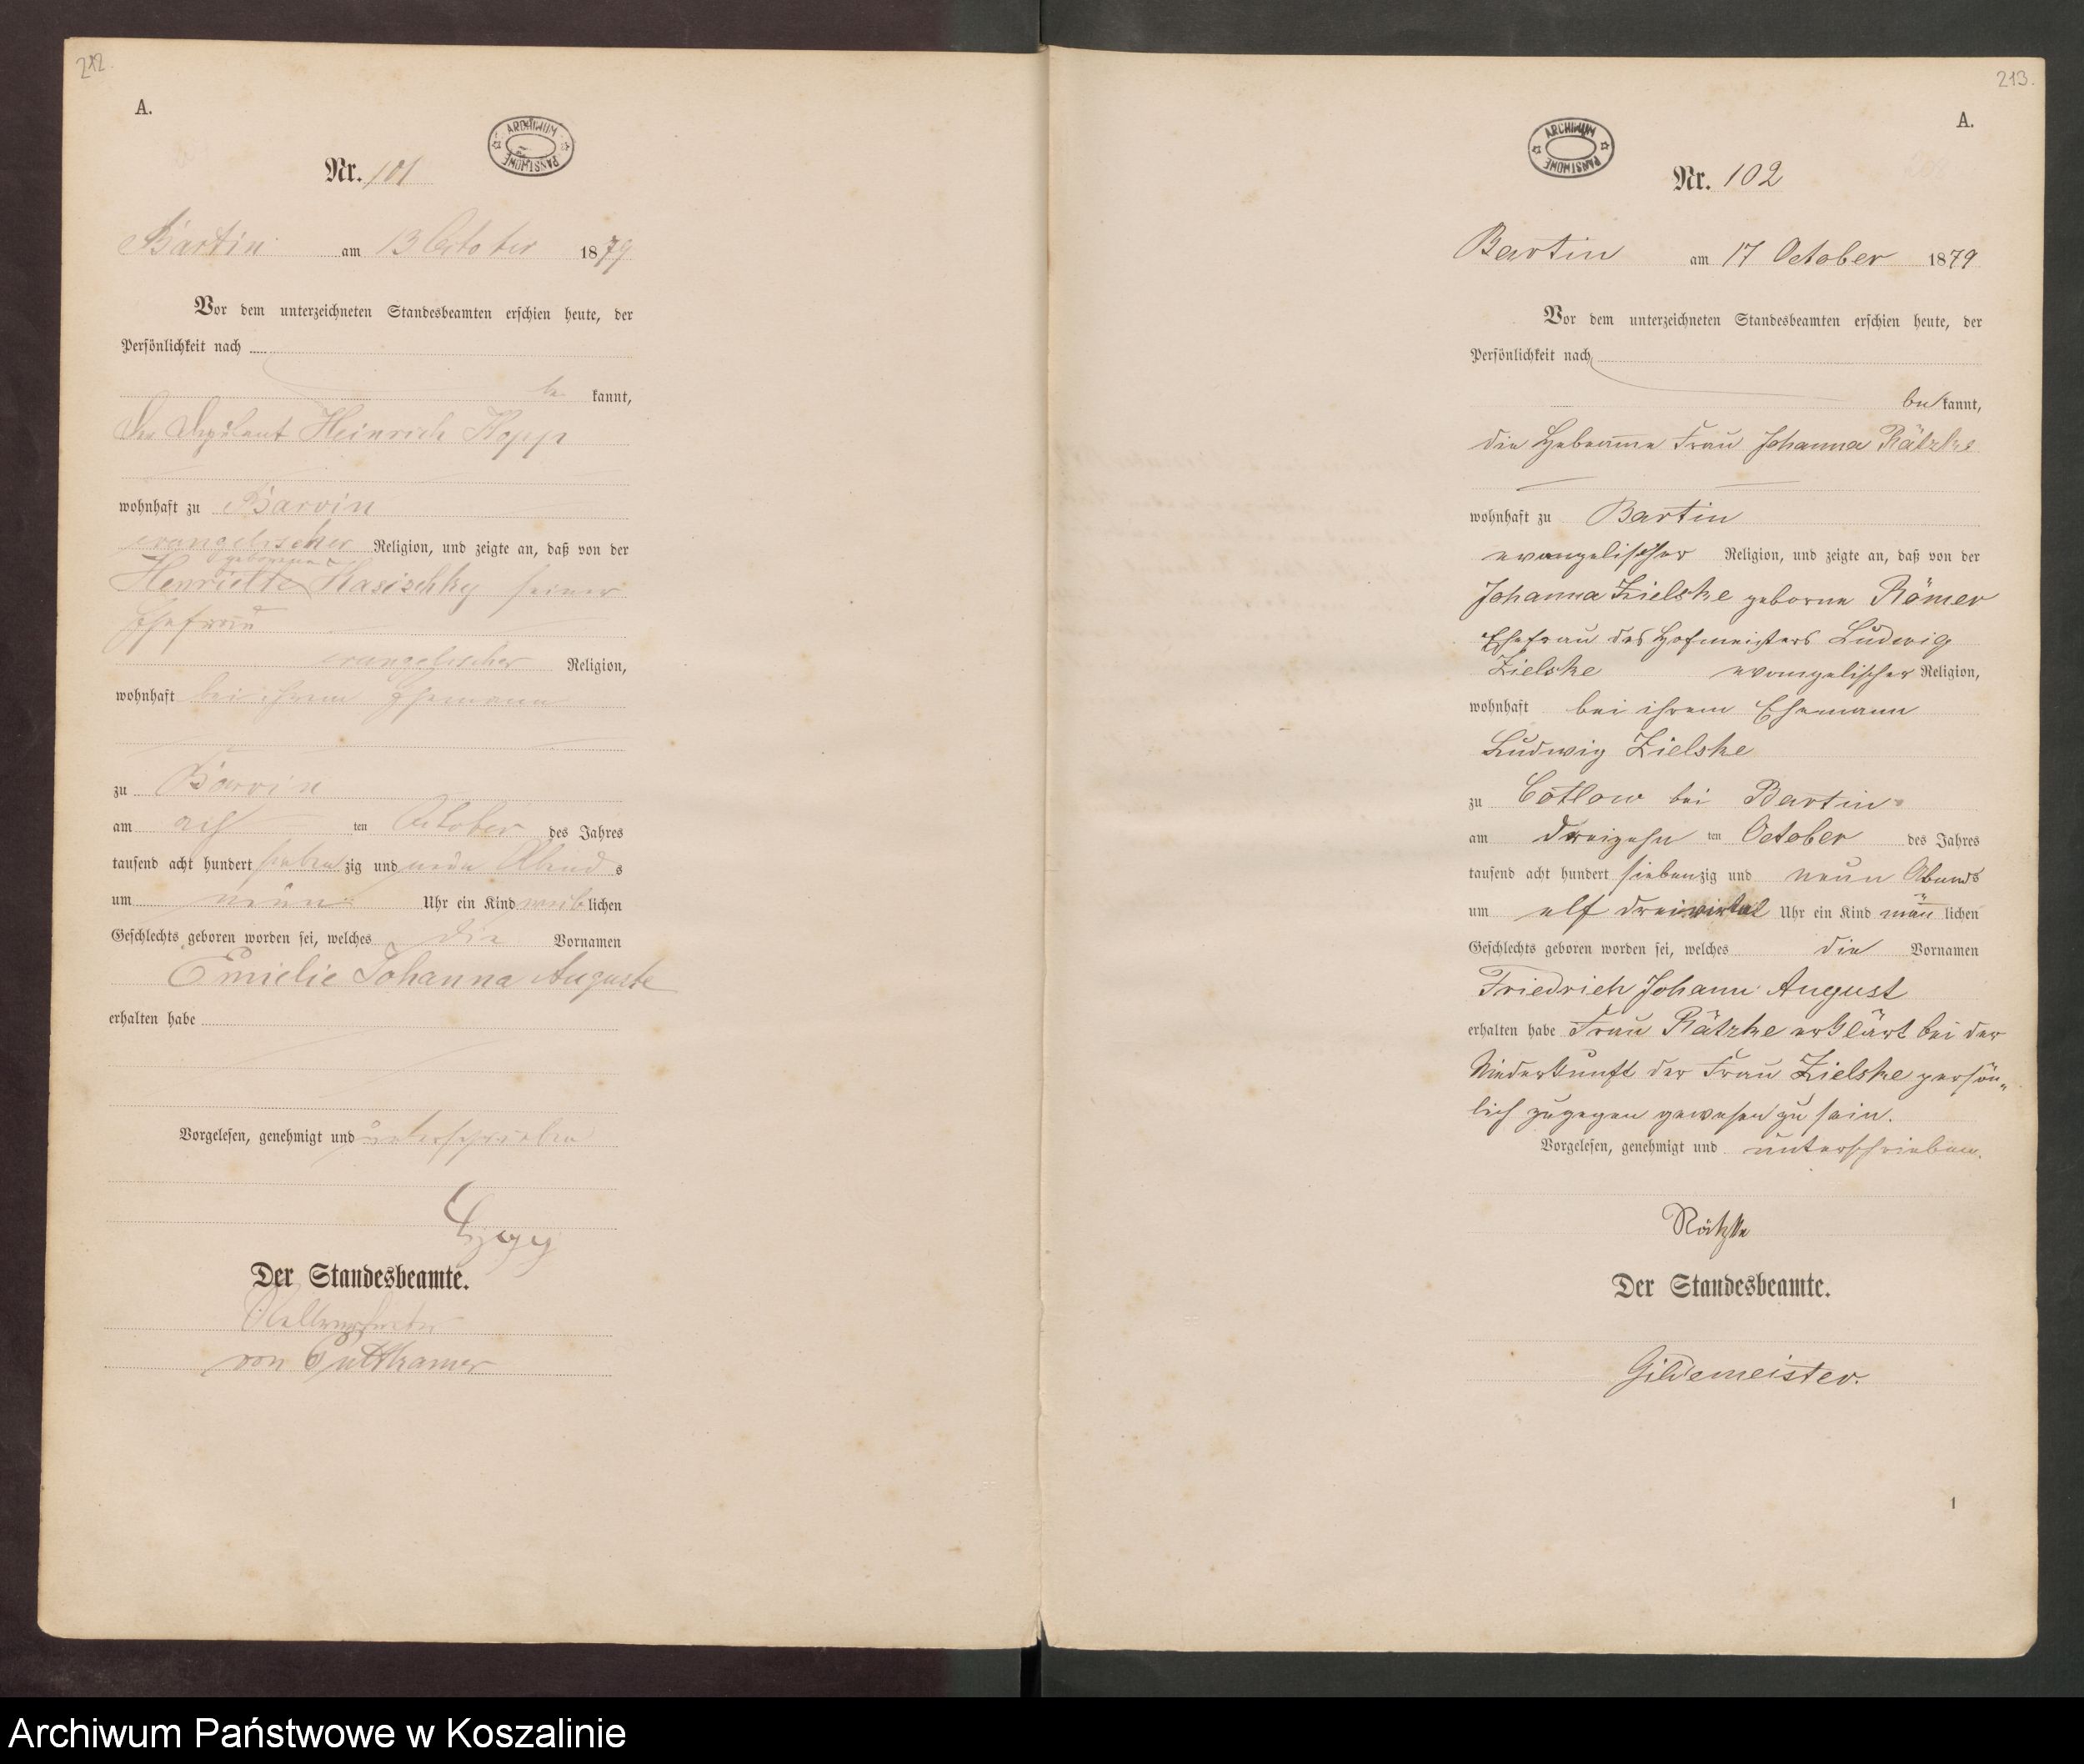 212.
A.
ARCHIWUM PAŃSTWOWE
Nr. 101
Bartin am 13 October 1879
Vor dem unterzeichneten Standesbeamten erschien heute, der
Persönlichkeit nach
be kannt,
Der Heinrich Kopp
wohnhaft zu Barvin
evangelischer Religion, und zeigte an, daß von der
geborene
Henriette Kasischky seiner
Ehefrau
evangelischer Religion,
wohnhaft bei ihrem Ehemann
zu Barvin
am acht ten October des Jahres
tausend acht hundert sieben zig und neun Abend s
um neun Uhr ein Kind weib lichen
Geschlechts geboren worden sei, welches die Vornamen
Emielie Johanna Auguste
erhalten habe
Vorgelesen, genehmigt und unterschrieben
Der Standesbeamte.
von Puttkamer
213.
A.
ARCHIWUM PAŃSTWOWE
Nr. 102
Bartin am 17 October 1879
Vor dem unterzeichneten Standesbeamten erschien heute, der
Persönlichkeit nach
be kannt,
die Hebamme Frau Johanna Rätzke
wohnhaft zu Bartin
evangelischer Religion, und zeigte an, daß von der
Johanna Zielske geborne Römer
Ehefrau des Hofmeisters Ludwig
Zielske evangelischer Religion,
wohnhaft bei ihrem Ehemann
Ludwig Zielske
zu Cotlow bei Bartin
am dreizehn ten October des Jahres
tausend acht hundert siebenzig und neun Abends
um elf dreiviertel Uhr ein Kind män̄ lichen
Geschlechts geboren worden sei, welches die Vornamen
Friedrich Johann August
erhalten habe Frau Rätzke erklärt bei der
Niederkunft der Frau Zielske persön-
lich zugegen gewesen zu sein.
Vorgelesen, genehmigt und unterschrieben.
Rätzke
Der Standesbeamte.
Gildemeister.
1
Archiwum Państwowe w Koszalinie